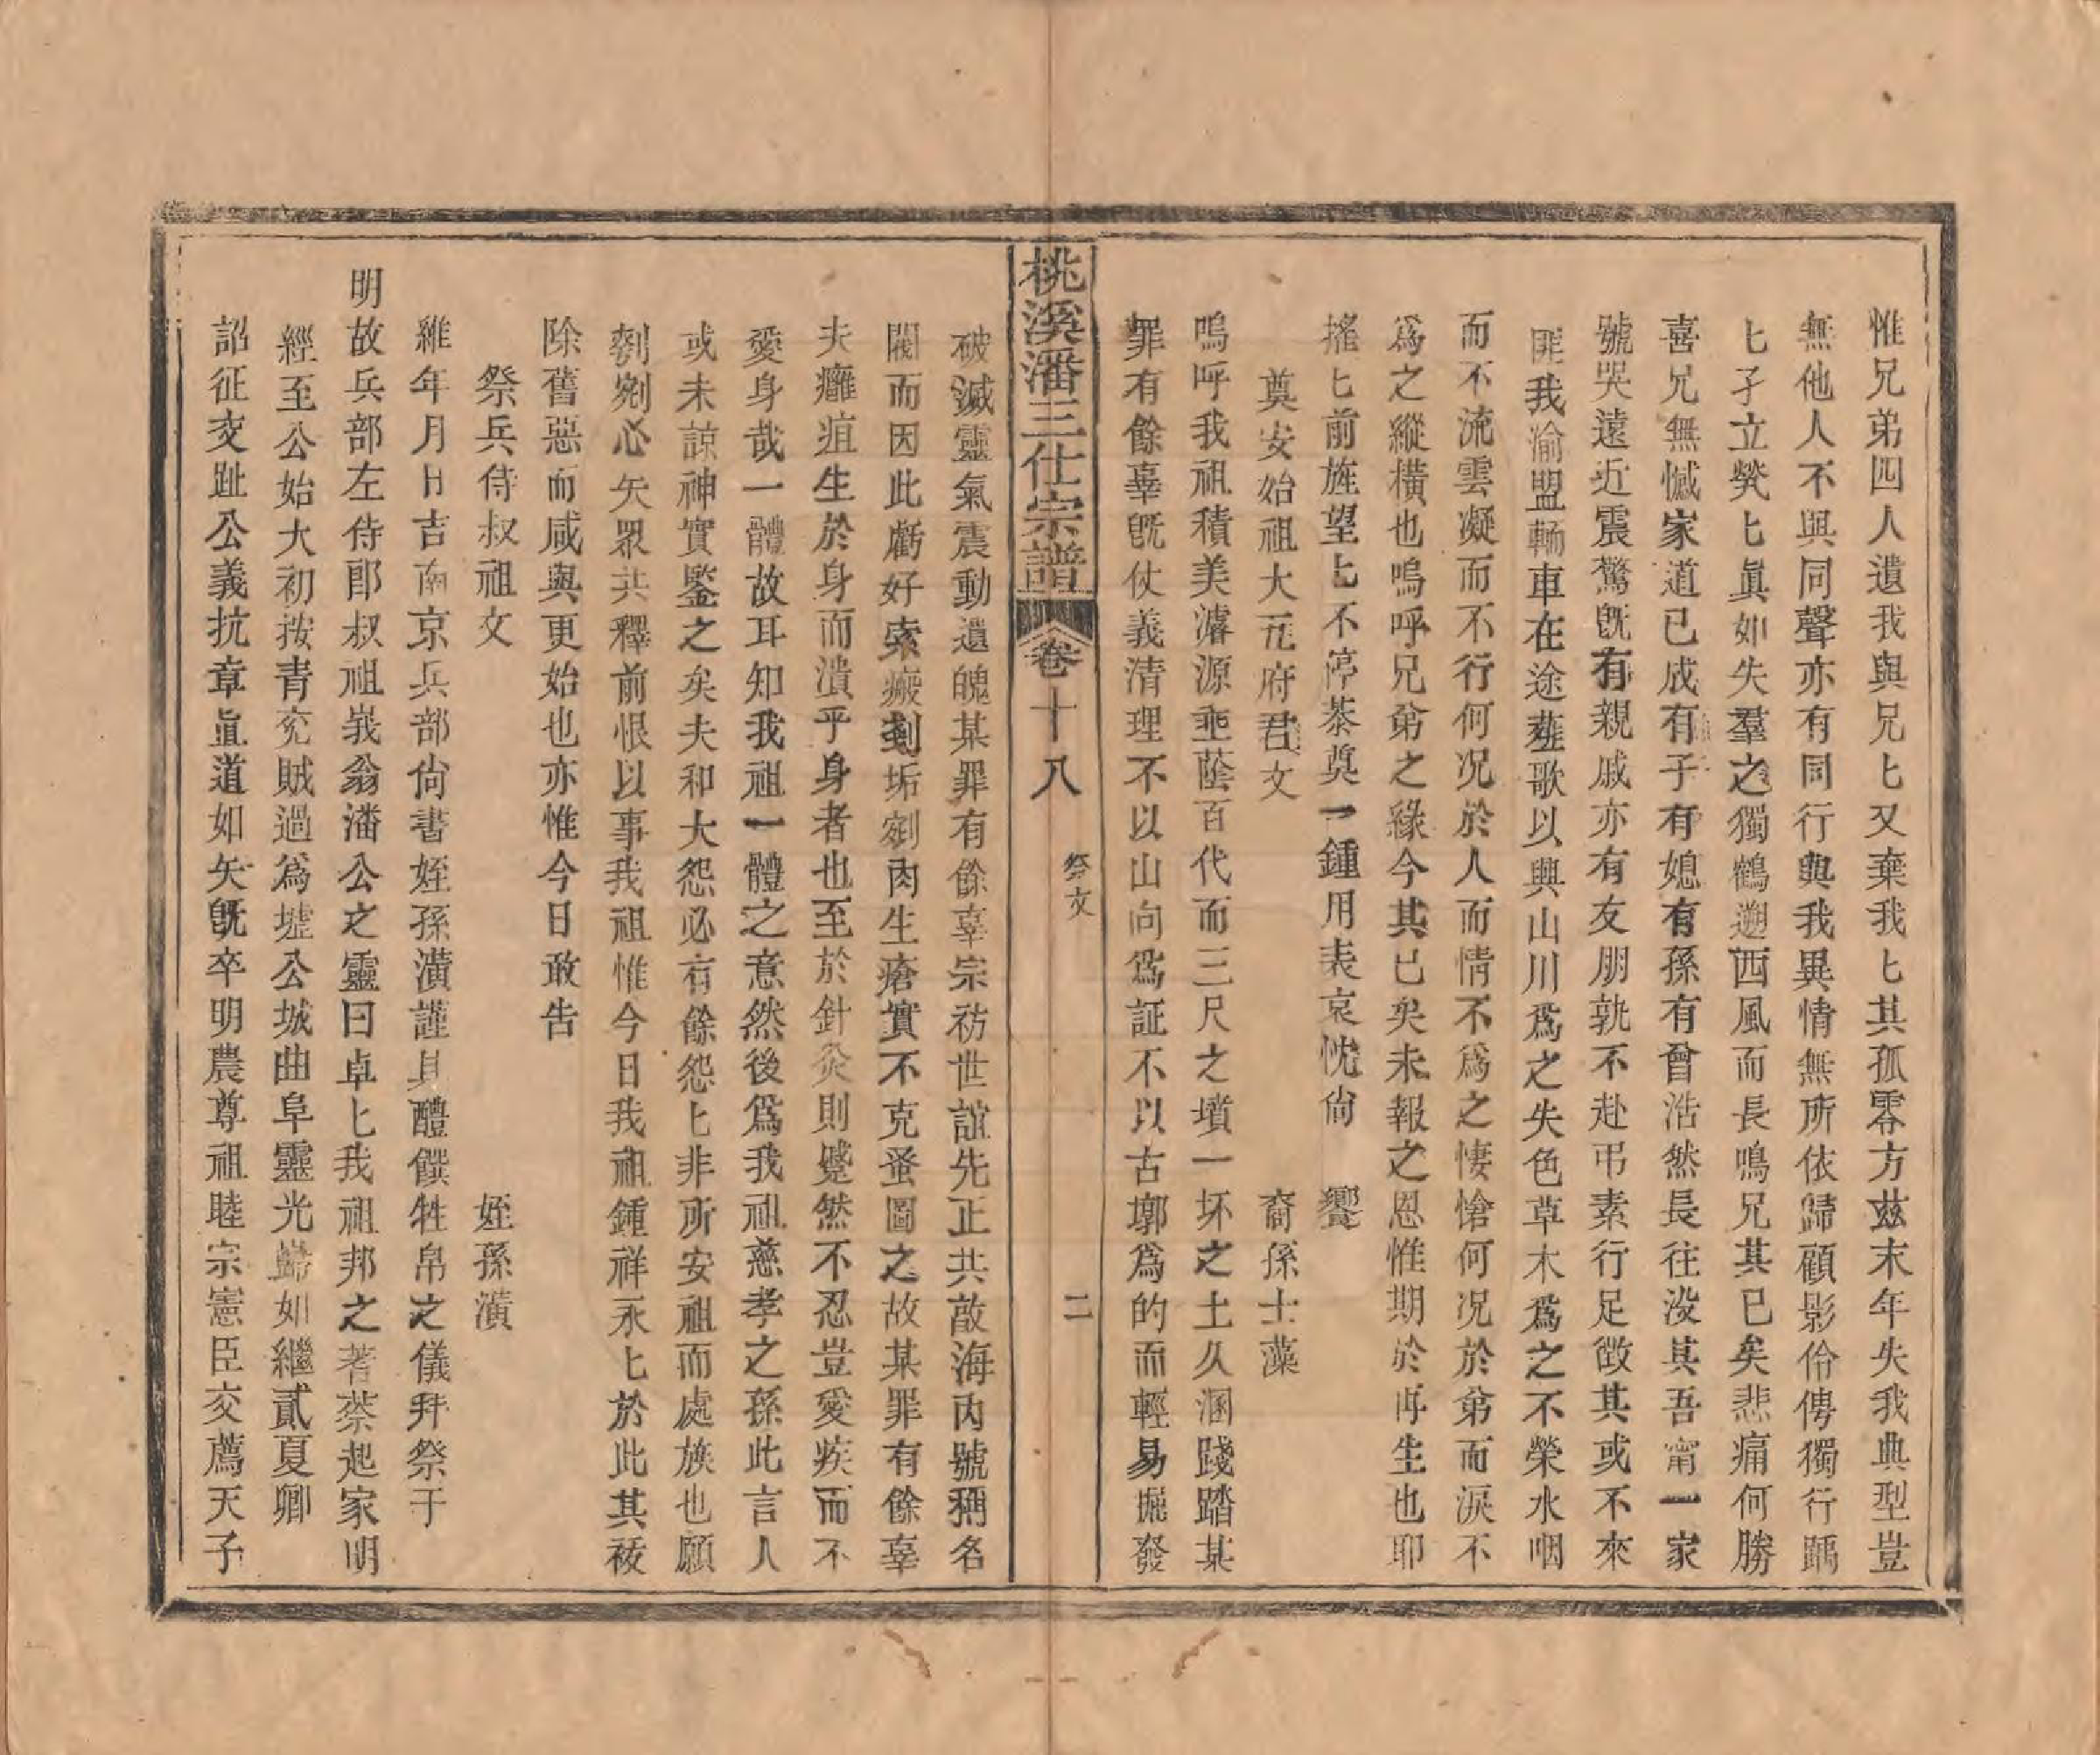 惟兄弟四人遺我與兄匕又棄我匕其孤零方茲末年失我典型豈
無他人不與同聲亦有同行與我異情無所依歸顧影伶俜獨行踽
匕孑立煢匕眞如失羣之獨鶴遡西風而長鳴兄其已矣悲痛何勝
喜兄無憾家道已成有子有媳有孫有曾浩然長往没其吾甯一家
號哭遠近震驚旣有親戚亦有友朋孰不赴弔素行足徴其或不來
匪我渝盟輀車在途薤歌以興山川爲之失色草木爲之不榮水咽
而不流雲凝而不行何况於人而情不爲之悽愴何况於弟而淚不
爲之縱横也嗚呼兄弟之緣今其已矣未報之恩惟期於再生也耶
搖匕前旌望匕不停荼奠一鍾用表哀忱尙 饗
奠安始祖大五府君文 裔孫士藻
嗚呼我祖積美濬源垂蔭百代而三尺之墳一坏之土久溷踐踏某
罪有餘辜旣仗義清理不以山向爲証不以古墎爲的而輕易掘發
桃溪潘三仕宗譜 卷十八 祭文 二
破滅靈氣震動遺魄某罪有餘辜宗祊世誼先正共敵海内號稱名
閥而因此虧好索瘢刻垢剜肉生瘡實不克蚤圖之故某罪有餘辜
夫癰疽生於身而潰乎身者也至於針灸則蹙然不忍豈愛疾而不
愛身哉一體故耳知我祖一體之意然後爲我祖慈孝之孫此言人
或未諒神實鑒之矣夫和大怨必有餘怨匕非所安祖而處族也願
剺剜心矢眾共釋前恨以事我祖惟今日我祖鍾祥永匕於此其祓
除舊惡而咸與更始也亦惟今日敢告
祭兵侍叔祖文 姪孫潢
維年月日吉南京兵部尙書姪孫潢謹具醴饌牲帛之儀拜祭于
明故兵部左侍郎叔祖峩翁潘公之靈曰卓匕我祖邦之蓍蔡起家明
經至公始大初按青兖賊過爲墟公城曲阜靈光巋如繼貳夏卿
詔征交趾公義抗章直道如矢旣卒明農尊祖睦宗憲臣交薦天子